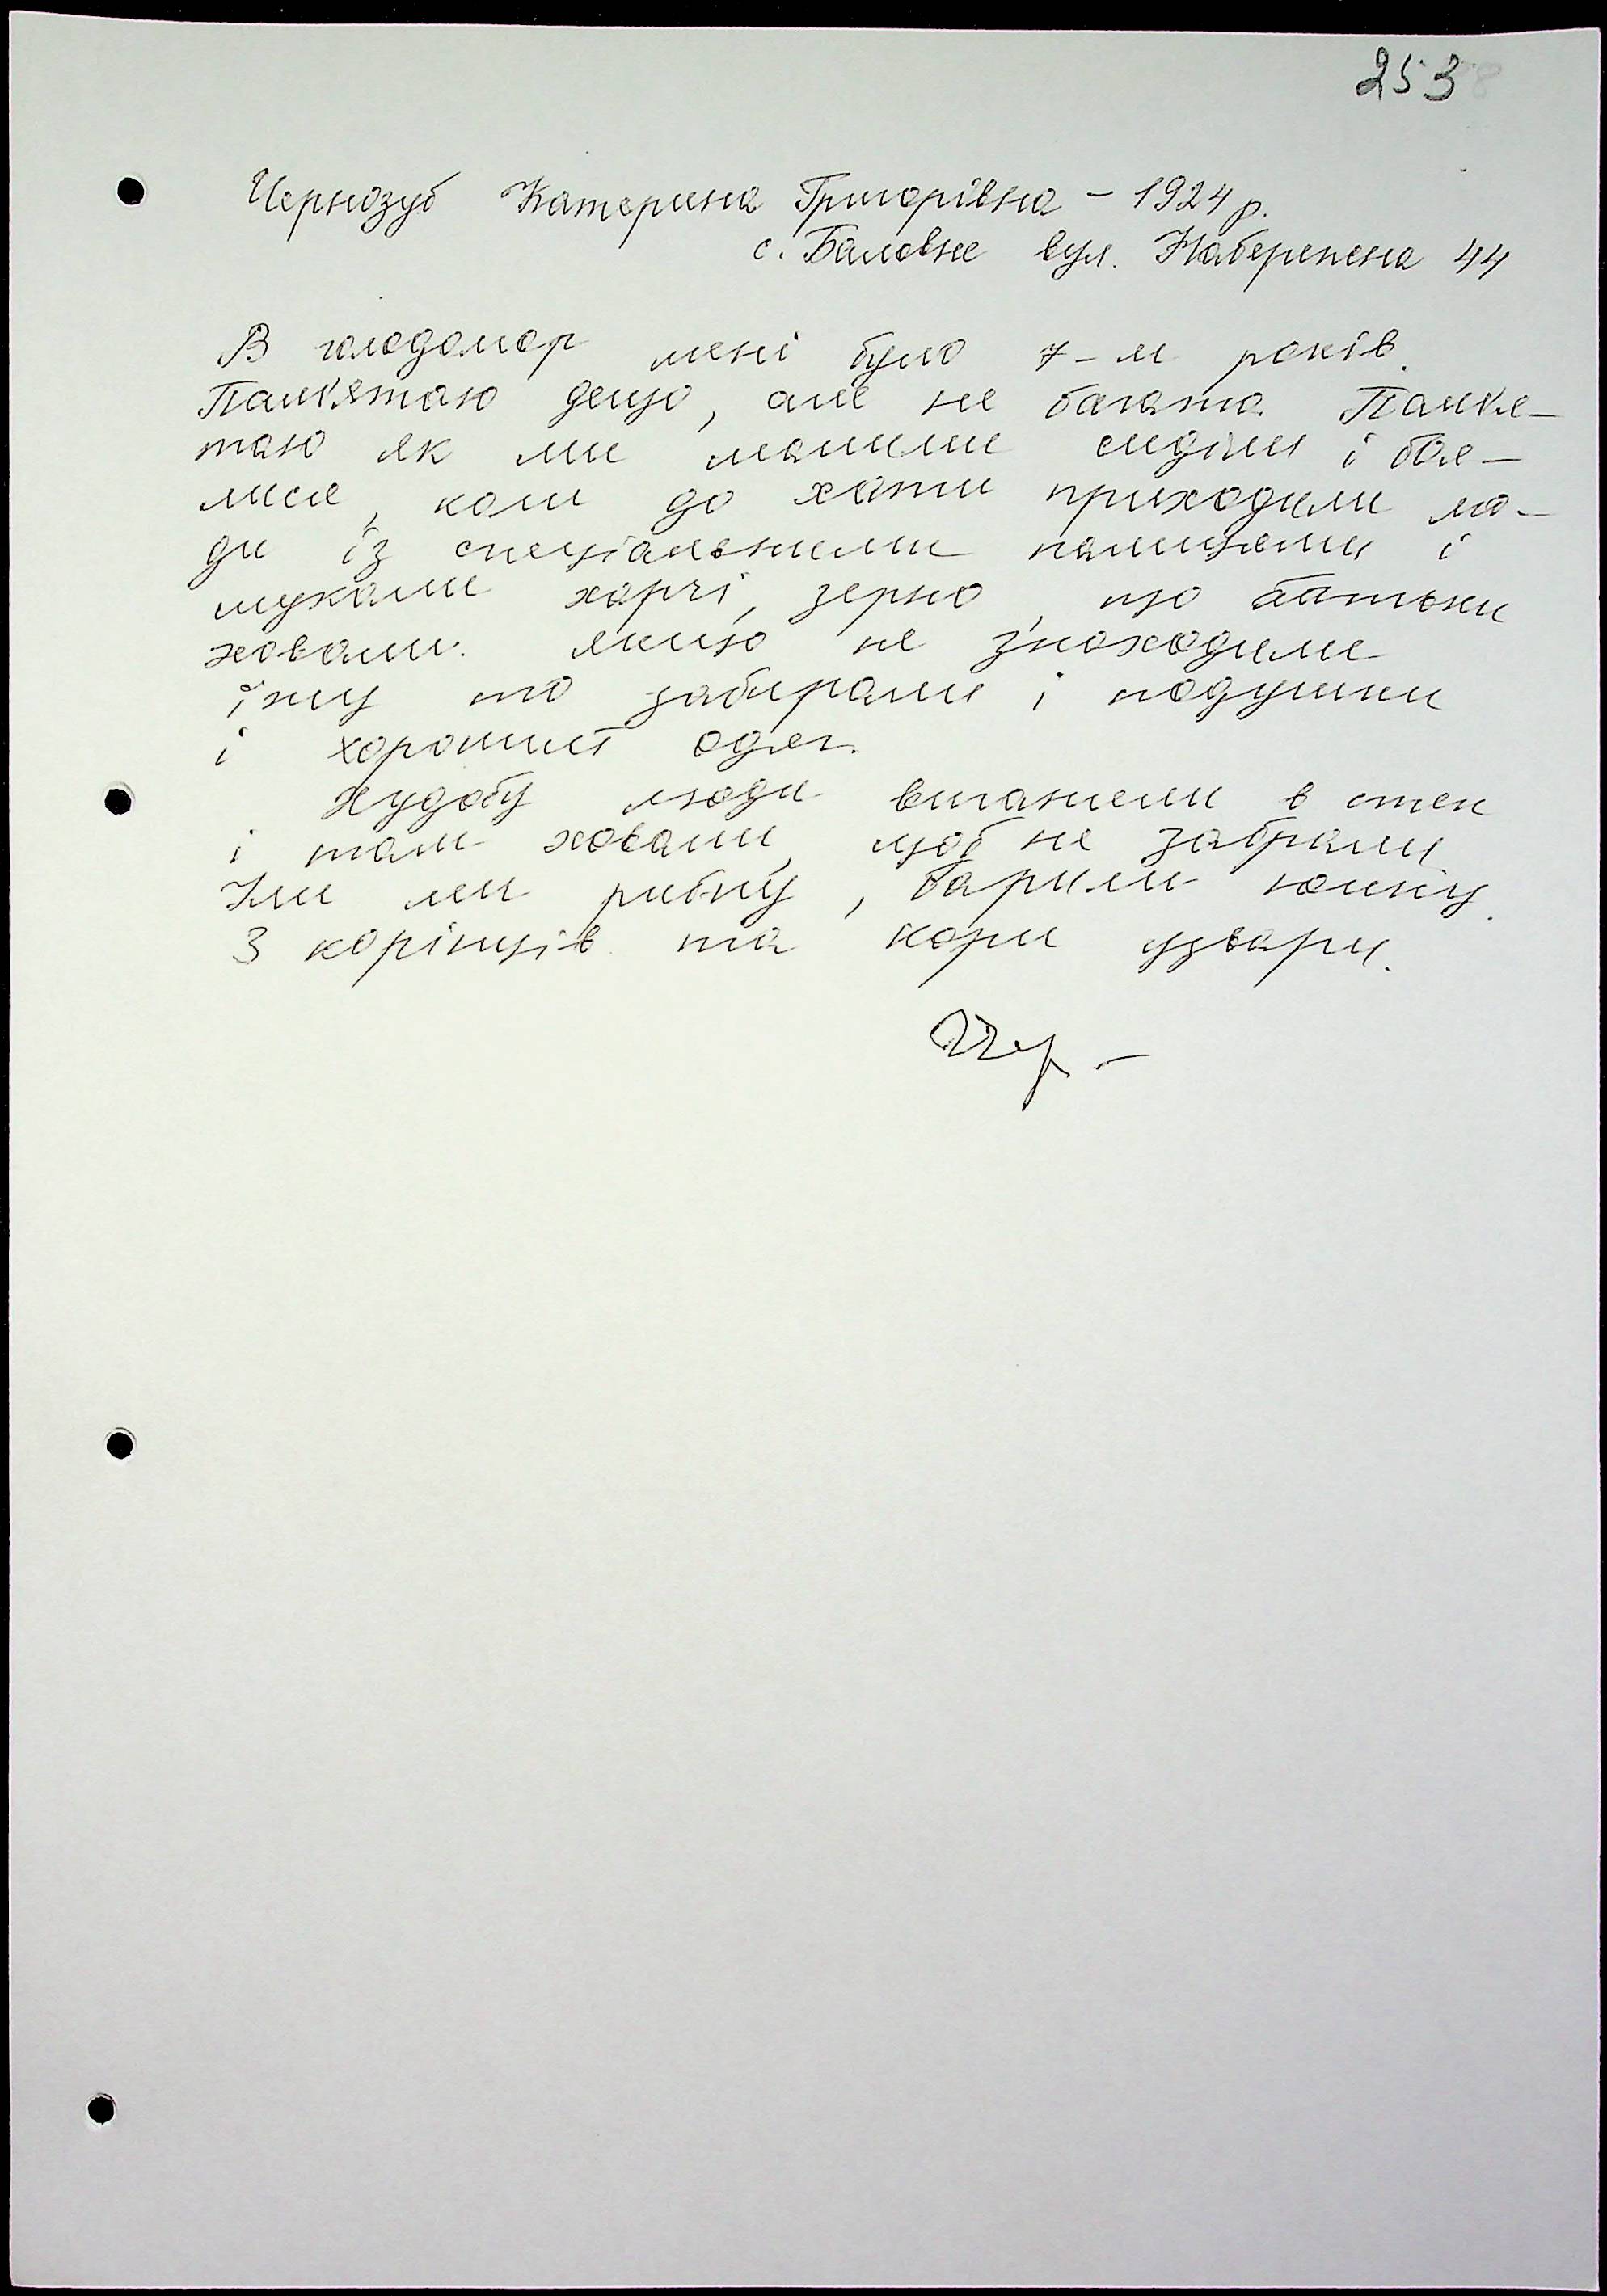 253
Чернозуб Катерина Григорівна - 1924 р.
с. Баловне вул. Набережна 44
В голодомор мені було 7-м років.
Пам'ятаю дещо, але не багато. Пам'я-
таю як ми малими сиділи і боя-
лися, коли до хати приходили лю-
ди із спеціальними палицями і
шукали харчі, зерно, що батьки
ховали. якщо не знаходили
їжу то забирали і подушки
і хороший одяг.
Худобу люди виганяли в степ
і там ховали, щоб не забрали.
Їли ми рибку, варили юшку.
З корінців та кори узвари.